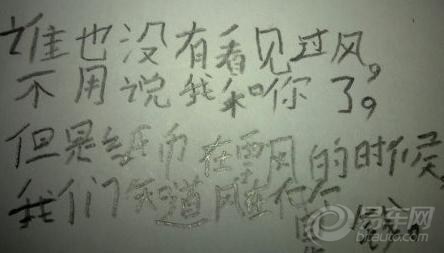 谁也没有看见过风，
不用说我和你了，
但是纸币在飘的时候
我们知道风在
算钱。
易车网
bitauto.com